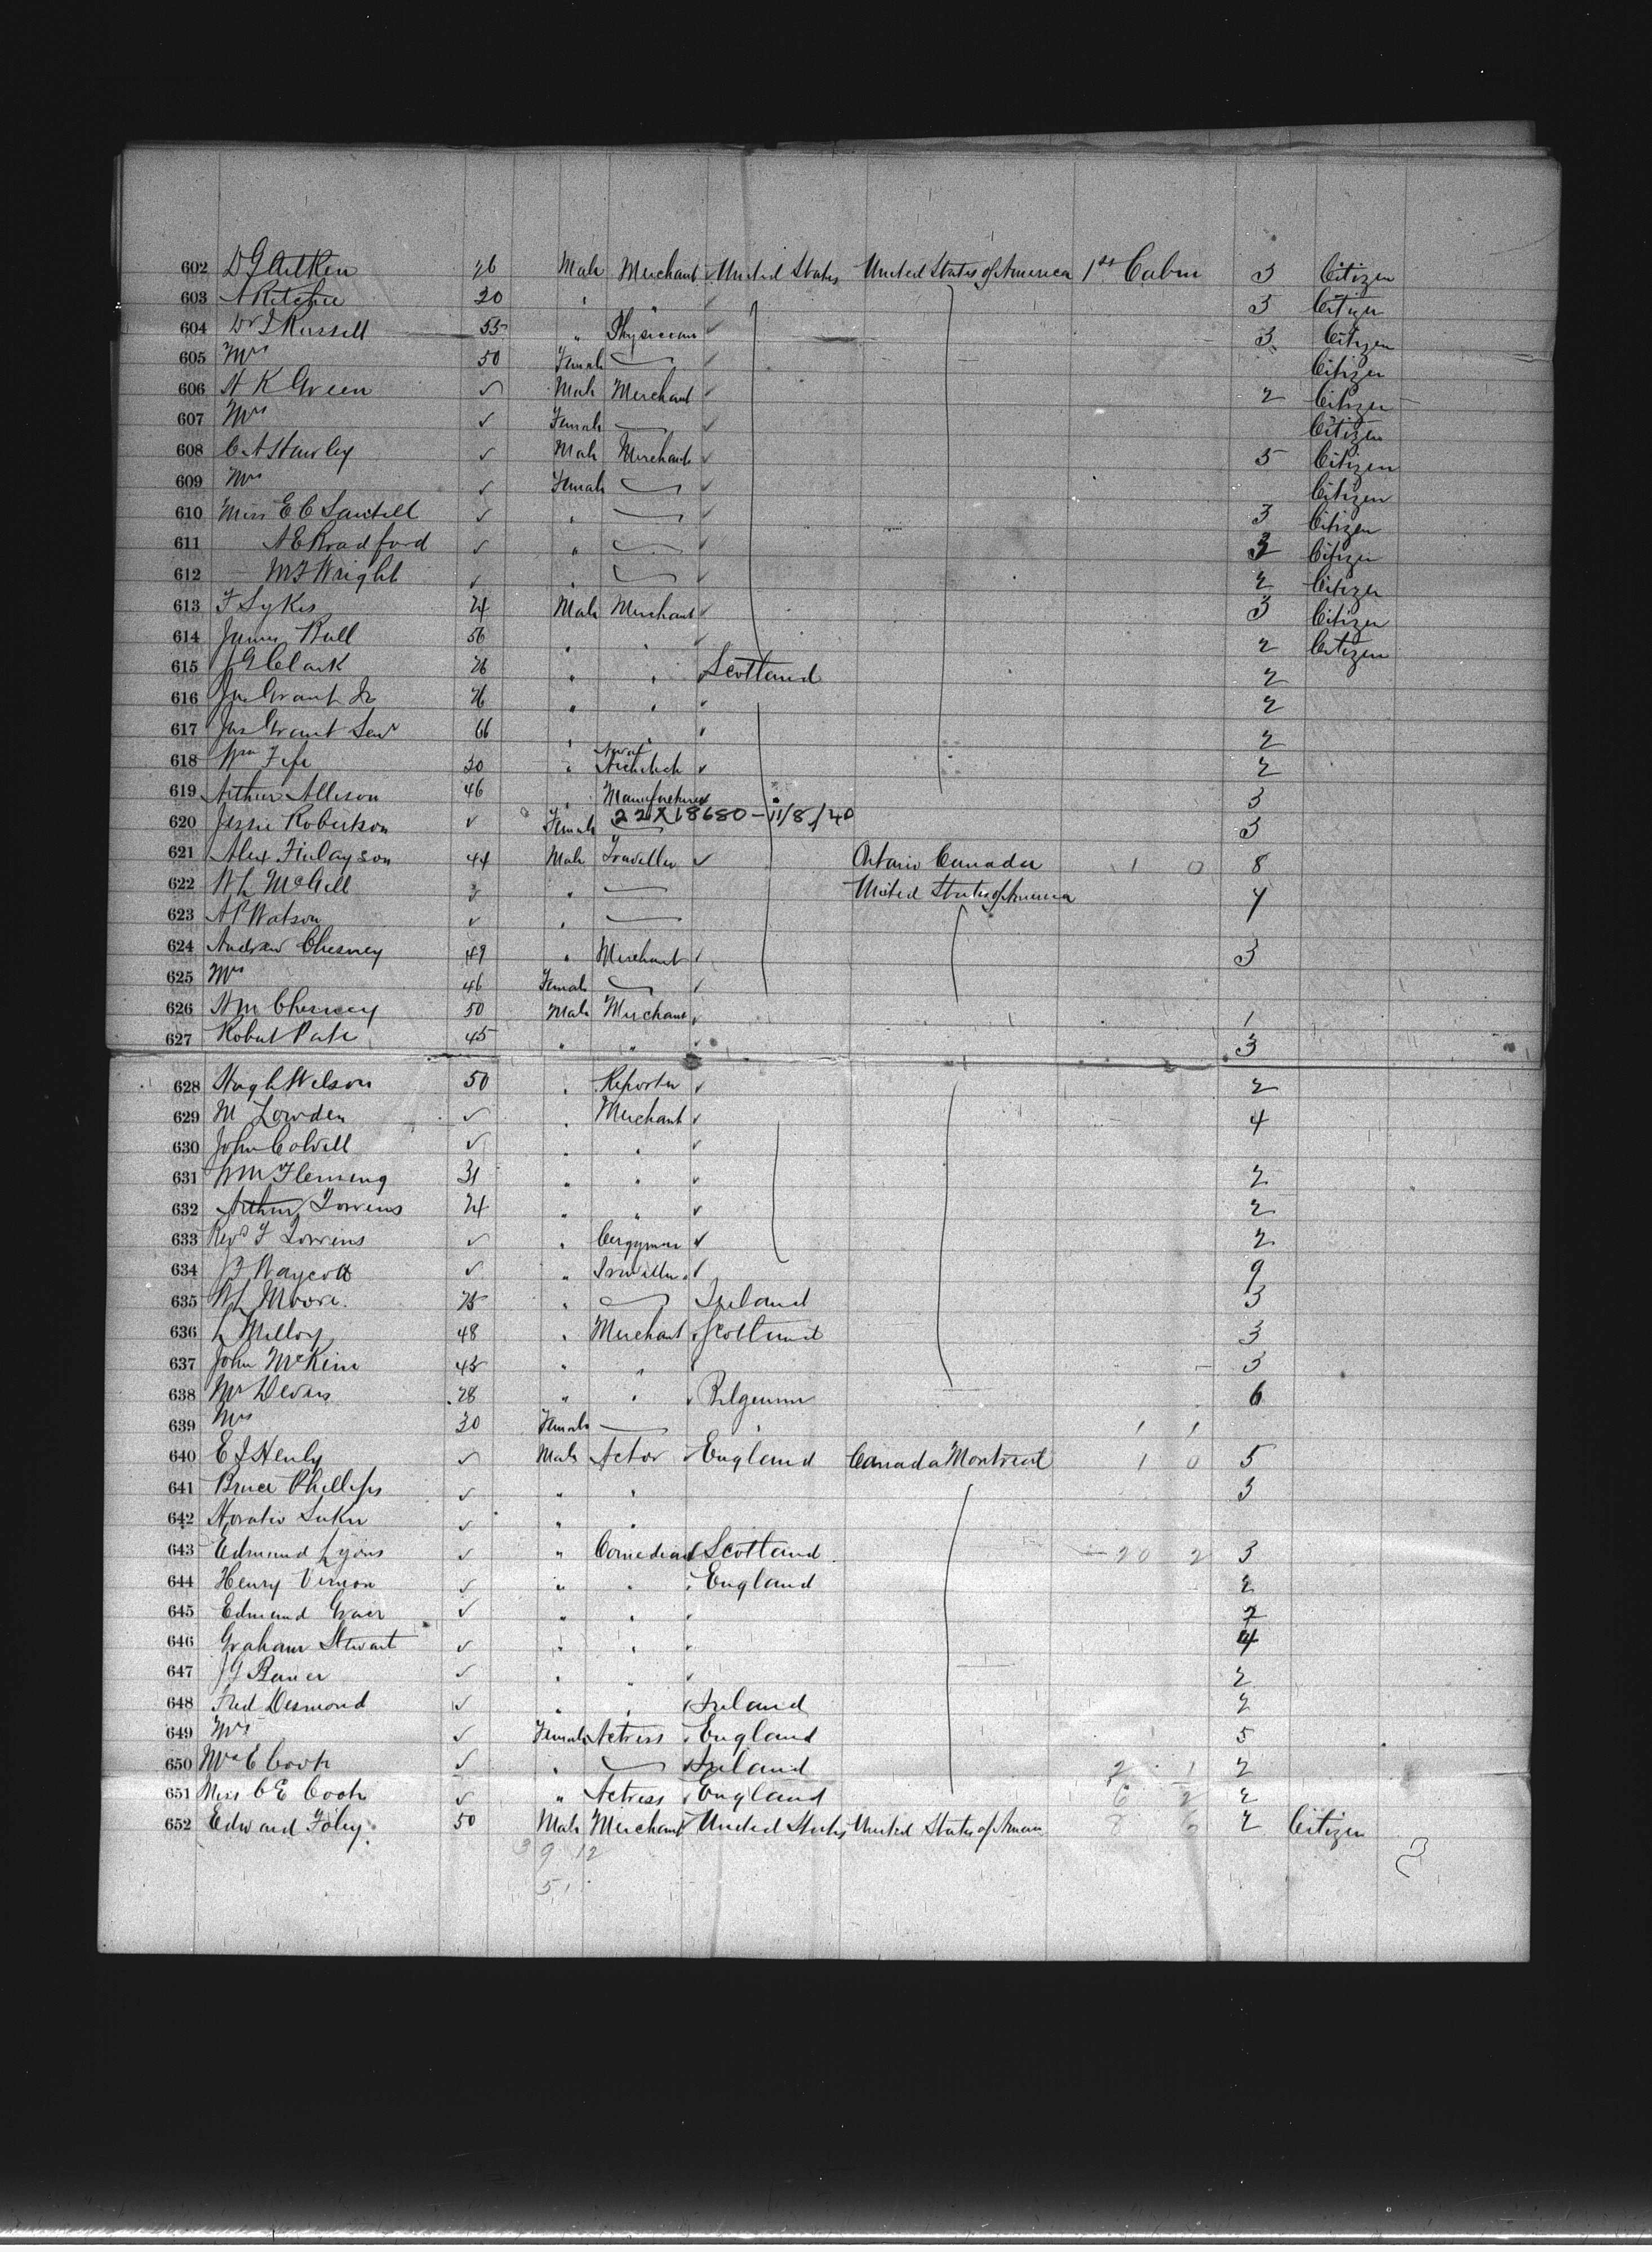 602 D G Aitken 26 Male Merchant ✓ United States United States of America 1st Cabin 3 Citizen
603 A Ritchie 20 " " ✓ 3 Citizen
604 Dr J Russell 55 " Physician ✓ 3 Citizen
605 Mrs 50 Female — ✓ Citizen
606 H K Green ✓ Male Merchant ✓ 2 Citizen
607 Mrs ✓ Female — ✓ Citizen
608 C A Hawley ✓ Male Merchant ✓ 5 Citizen
609 Mrs ✓ Female — ✓ Citizen
610 Miss E C Sawtell ✓ " — ✓ 3 Citizen
611 A E Bradford ✓ " — ✓ 3 Citizen
612 — M F Wright ✓ " — ✓ 2 Citizen
613 F Sykes 24 Male Merchant ✓ 3 Citizen
614 James Bull 56 " " ✓ 2 Citizen
615 J G Clark 26 " " Scotland 2
616 Jas Grant Jr 26 " " ✓ 2
617 Jas Grant Senr 66 " " ✓ 2
618 Wm Fife 30 " Naval Architect ✓ 2
619 Arthur Allison 46 " Manufacturer 3
620 Jessie Robertson ✓ Female 22X18680 – 11/8/40 3
621 Alex Finlayson 44 Male Traveller ✓ Ontario Canada 1 0 8
622 W L McGill ✓ " — United States of America 4
623 A P Watson ✓ " —
624 Andrew Chesney 49 " Merchant ✓ 3
625 Mrs 46 Female — ✓
626 Wm Chesney 50 Male Merchant ✓ 1
627 Robert Pate 45 " " ✓ 3
628 Hugh Wilson 50 " Reporter ✓ 2
629 M Lowden ✓ " Merchant ✓ 4
630 John Colvill ✓ " " ✓
631 Wm Fleming 31 " " ✓ 2
632 Arthur Torrens 24 " " ✓ 2
633 Revd F Torrens ✓ " Clergyman ✓ 2
634 J F Waycott ✓ " Traveller ✓ 9
635 W L Moore 25 " — Ireland 3
636 L Milloy 48 " Merchant Scotland 3
637 John McKim 45 " " 3
638 Mr Devos 28 " " ✓ Belgium 6
639 Mrs 30 Female — " 1 1
640 E J Henly ✓ Male Actor ✓ England Canada Montreal 1 0 5
641 Bruce Phillips ✓ " " 3
642 Horatio Saker ✓ " "
643 Edmund Lyons ✓ " Comedian Scotland 20 2 3
644 Henry Vernon ✓ " " England 2
645 Edmund Grace ✓ " " " 2
646 Graham Stewart ✓ " " " 4
647 J G Bauer ✓ " " ✓ 2
648 Fred Desmond ✓ " " Ireland 2
649 Mrs ✓ Female Actress England 5
650 Mrs E Cook ✓ " — Ireland 2 1 2
651 Miss C E Cook ✓ " Actress England 6 2 2
652 Edward Foley 50 Male Merchant United States United States of Amer 8 6 2 Citizen
39 12
51